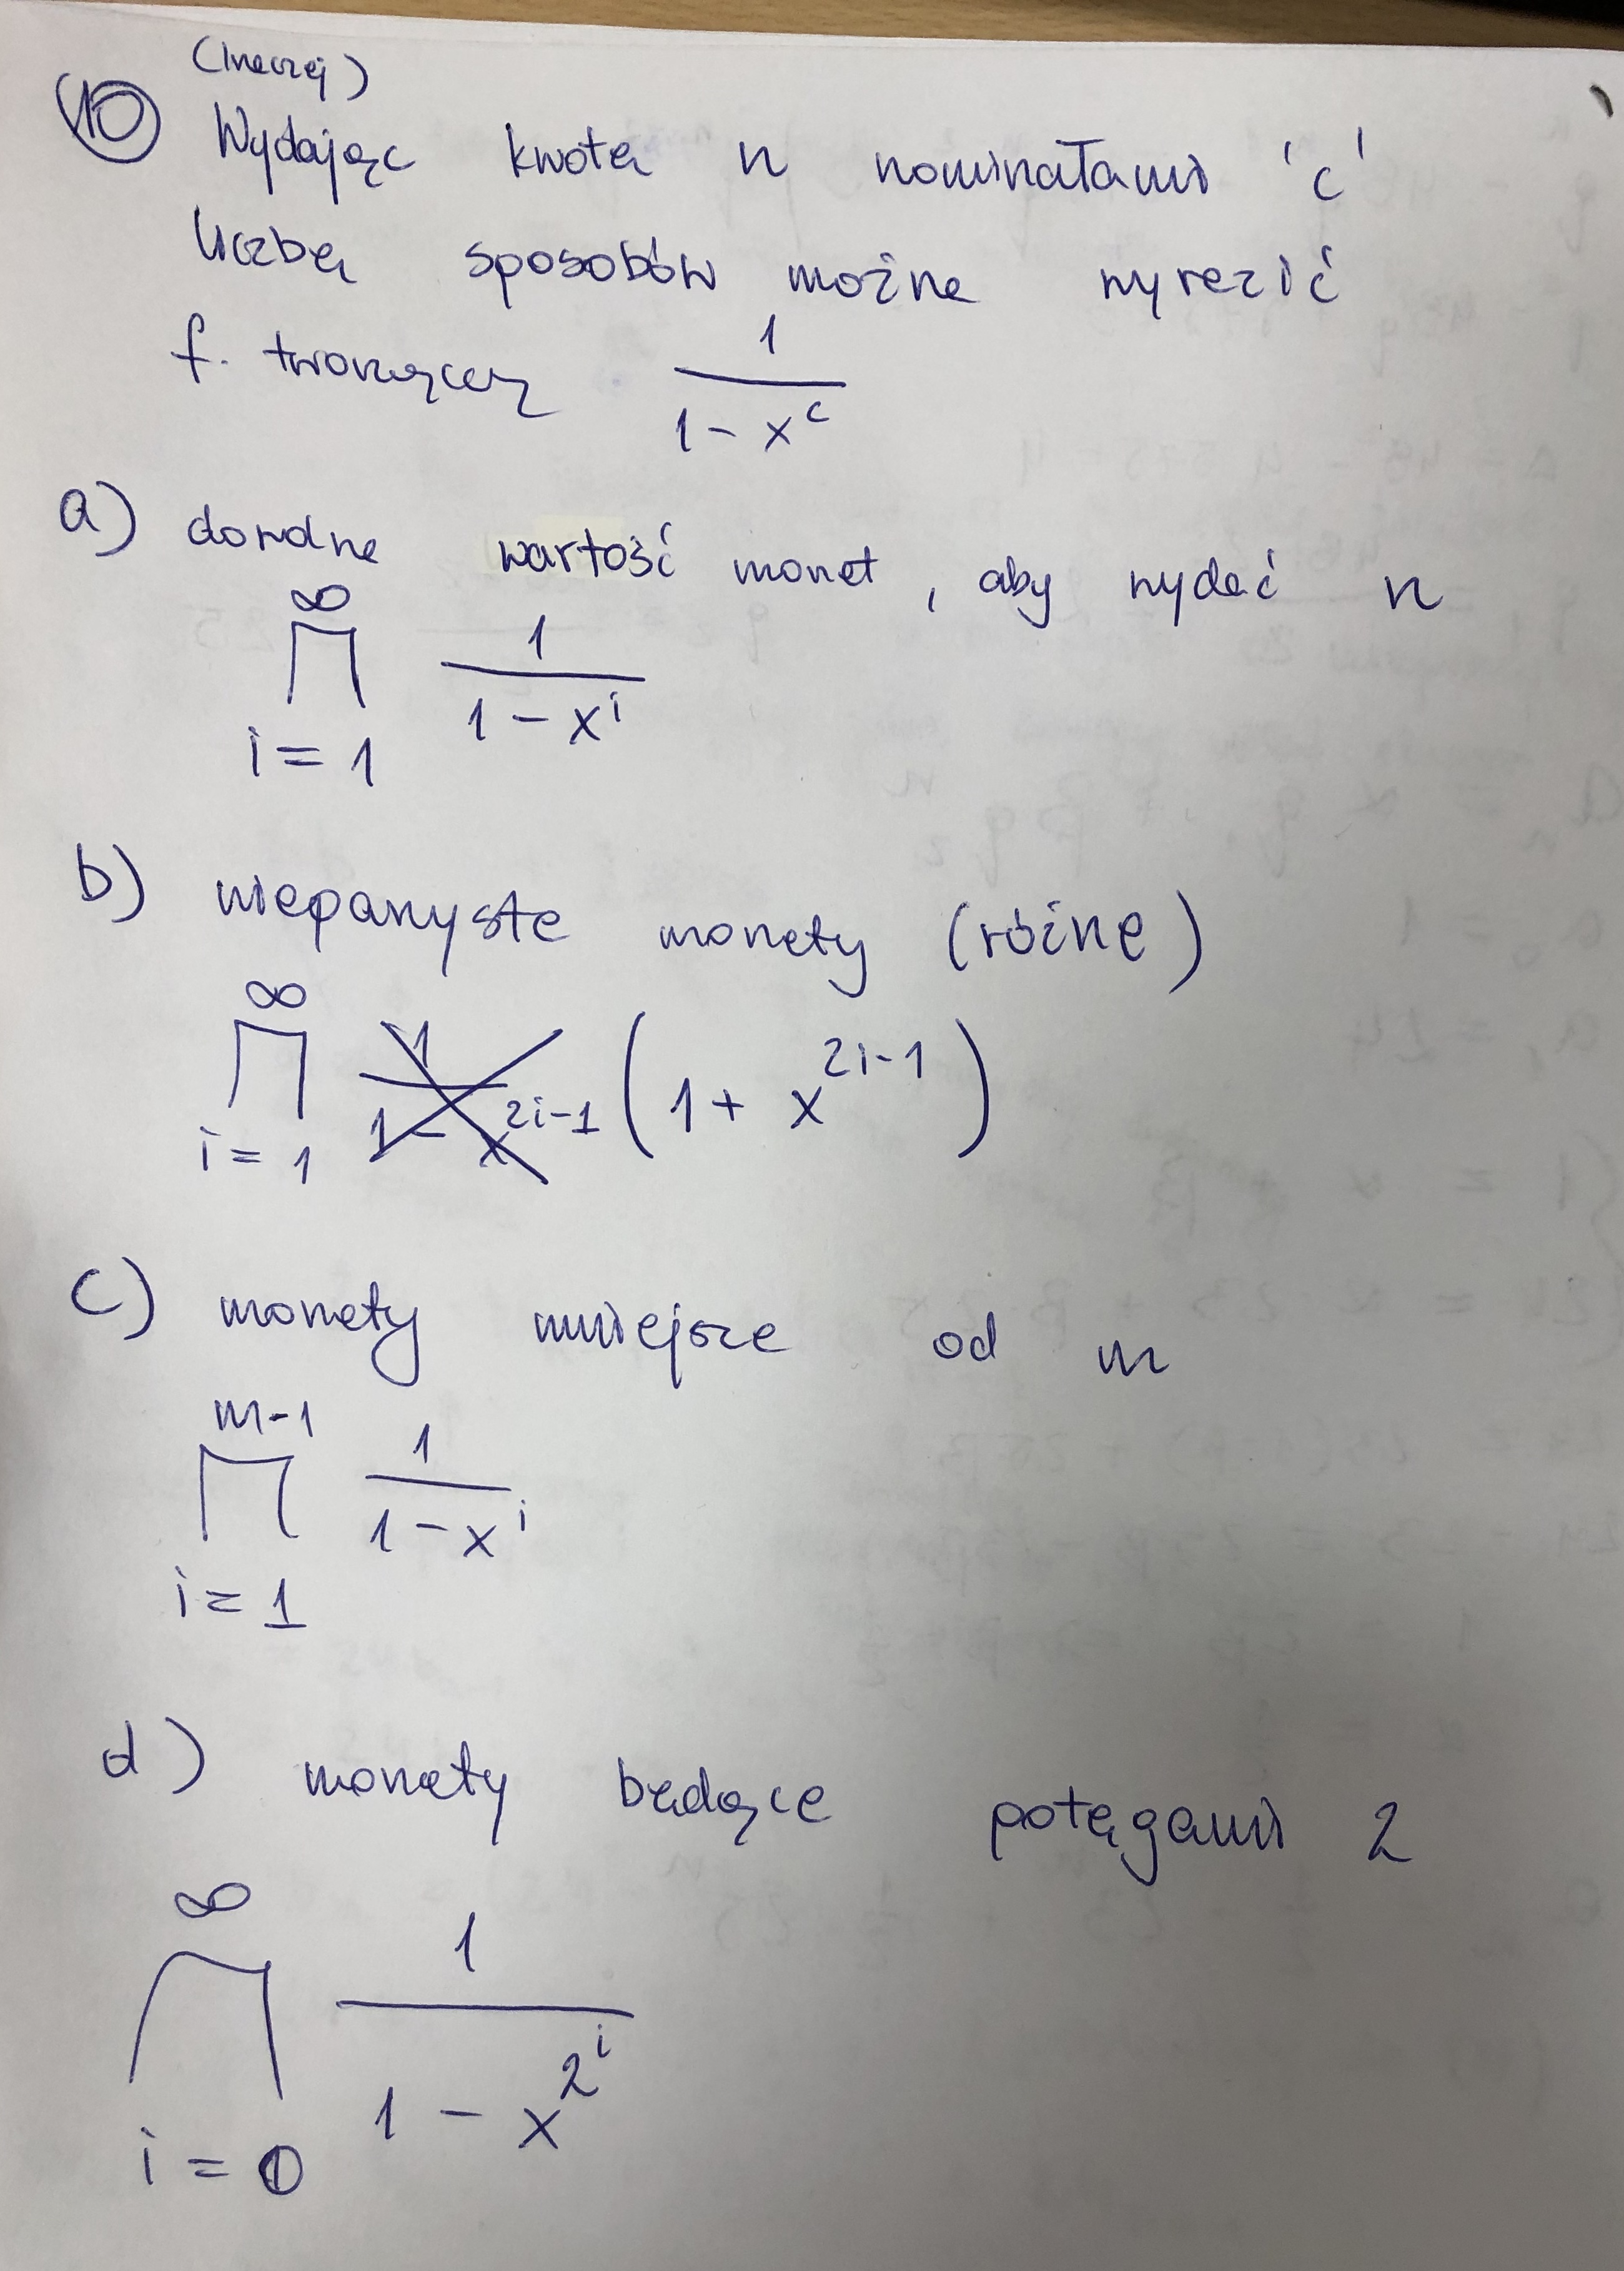 (Inaczej)
10 Wydając kwotę n nominałami 'c'
liczbę sposobów można wyrazić
f. tworzącą 1/(1 - x^c)
a) dowolna wartość monet, aby wydać n
∞
∏ 1/(1 - x^i)
i = 1
b) nieparzyste monety (różne)
∞
∏ 1/(1 - x^(2i-1)) (1 + x^(2i-1))
i = 1
c) monety mniejsze od m
m-1
∏ 1/(1 - x^i)
i = 1
d) monety będące potęgami 2
∞
∏ 1/(1 - x^(2^i))
i = 0